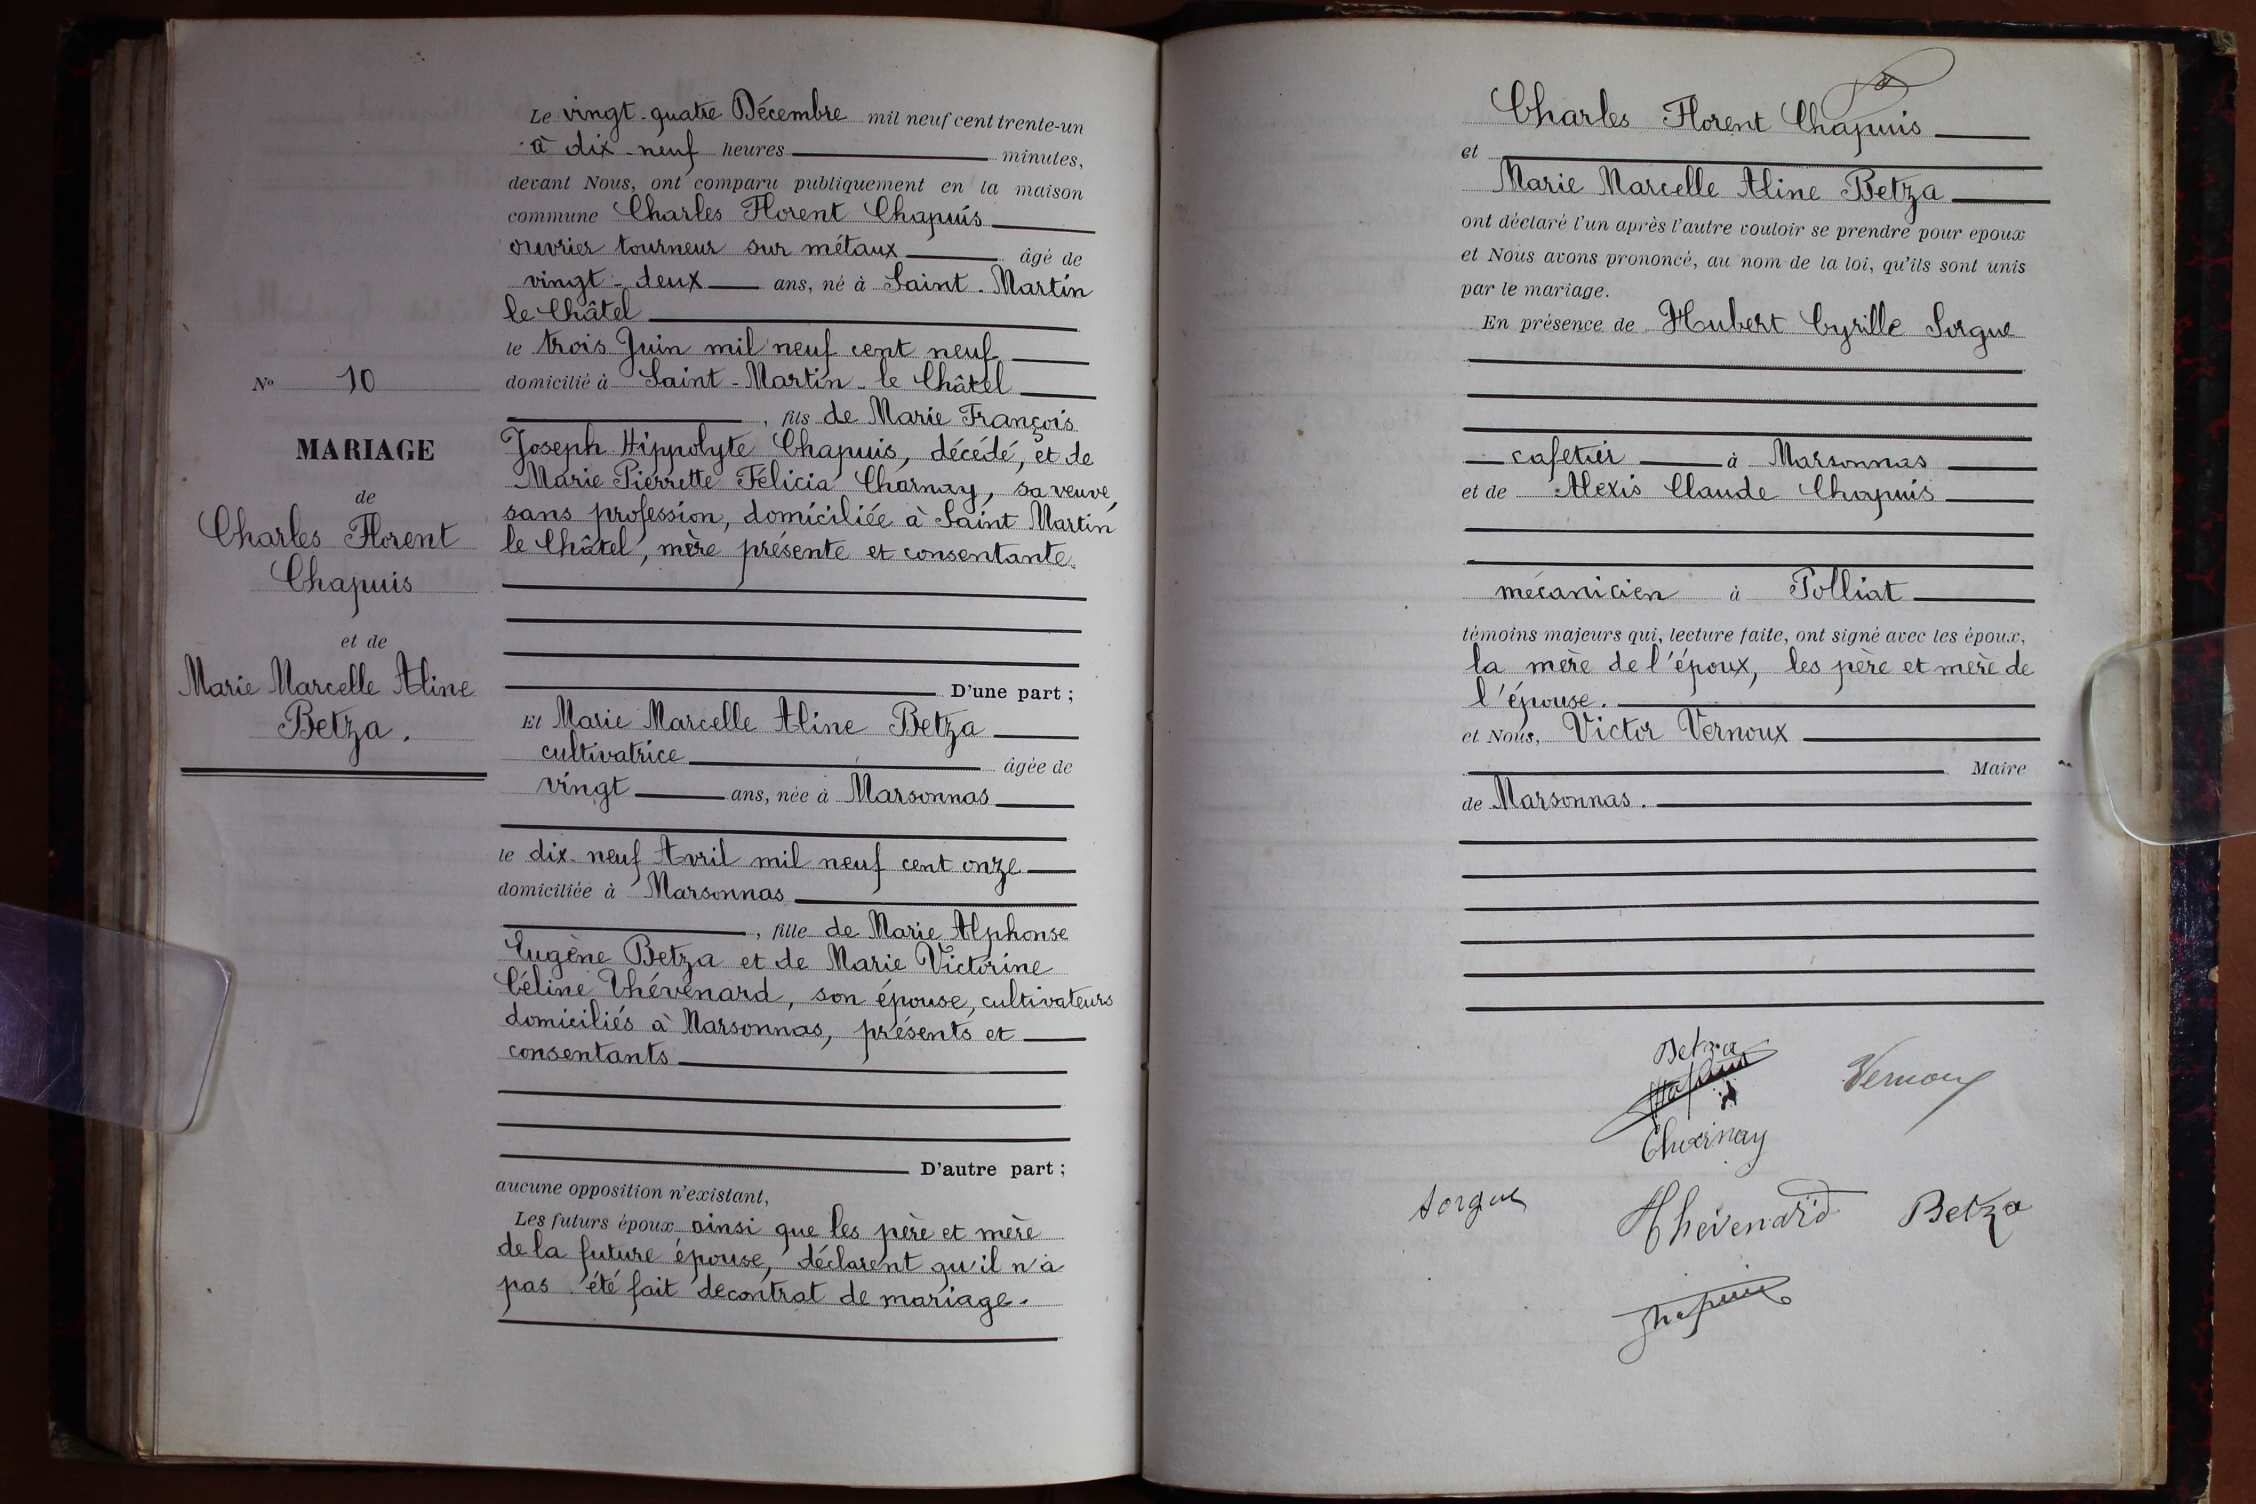 Le vingt-quatre Décembre mil neuf cent trente-un
à dix-neuf heures minutes,
devant Nous, ont comparu publiquement en la maison
commune Charles Florent Chapuis
ouvrier tourneur sur métaux âgé de
vingt-deux ans, né à Saint-Martin
le Châtel
le trois Juin mil neuf cent neuf
domicilié à Saint-Martin-le Châtel
, fils de Marie François
Joseph Hippolyte Chapuis, décédé, et de
Marie Pierrette Félicia Charnay, sa veuve,
sans profession, domiciliée à Saint Martin
le Châtel, mère présente et consentante.
D'une part ;
Et Marie Marcelle Aline Betza
cultivatrice âgée de
vingt ans, née à Marsonnas
le dix-neuf Avril mil neuf cent onze
domiciliée à Marsonnas
, fille de Marie Alphonse
Eugène Betza et de Marie Victorine
Céline Thévenard, son épouse, cultivateurs
domiciliés à Marsonnas, présents et
consentants
D'autre part ;
aucune opposition n'existant,
Les futurs époux ainsi que les père et mère
de la future épouse, déclarent qu'il n'a
pas été fait de contrat de mariage.
No 10
MARIAGE
de
Charles Florent
Chapuis
et de
Marie Marcelle Aline
Betza.
Charles Florent Chapuis
et
Marie Marcelle Aline Betza
ont déclaré l'un après l'autre vouloir se prendre pour époux
et Nous avons prononcé, au nom de la loi, qu'ils sont unis
par le mariage.
En présence de Hubert Cyrille Sorgue
cafetier à Marsonnas
et de Alexis Claude Chapuis
mécanicien à Polliat
témoins majeurs qui, lecture faite, ont signé avec les époux,
la mère de l'époux, les père et mère de
l'épouse.
et Nous, Victor Vernoux
Maire
de Marsonnas.
Betza
Chapuis
Vernoux
Charnay
Sorgue
Thévenard
Betza
Chapuis